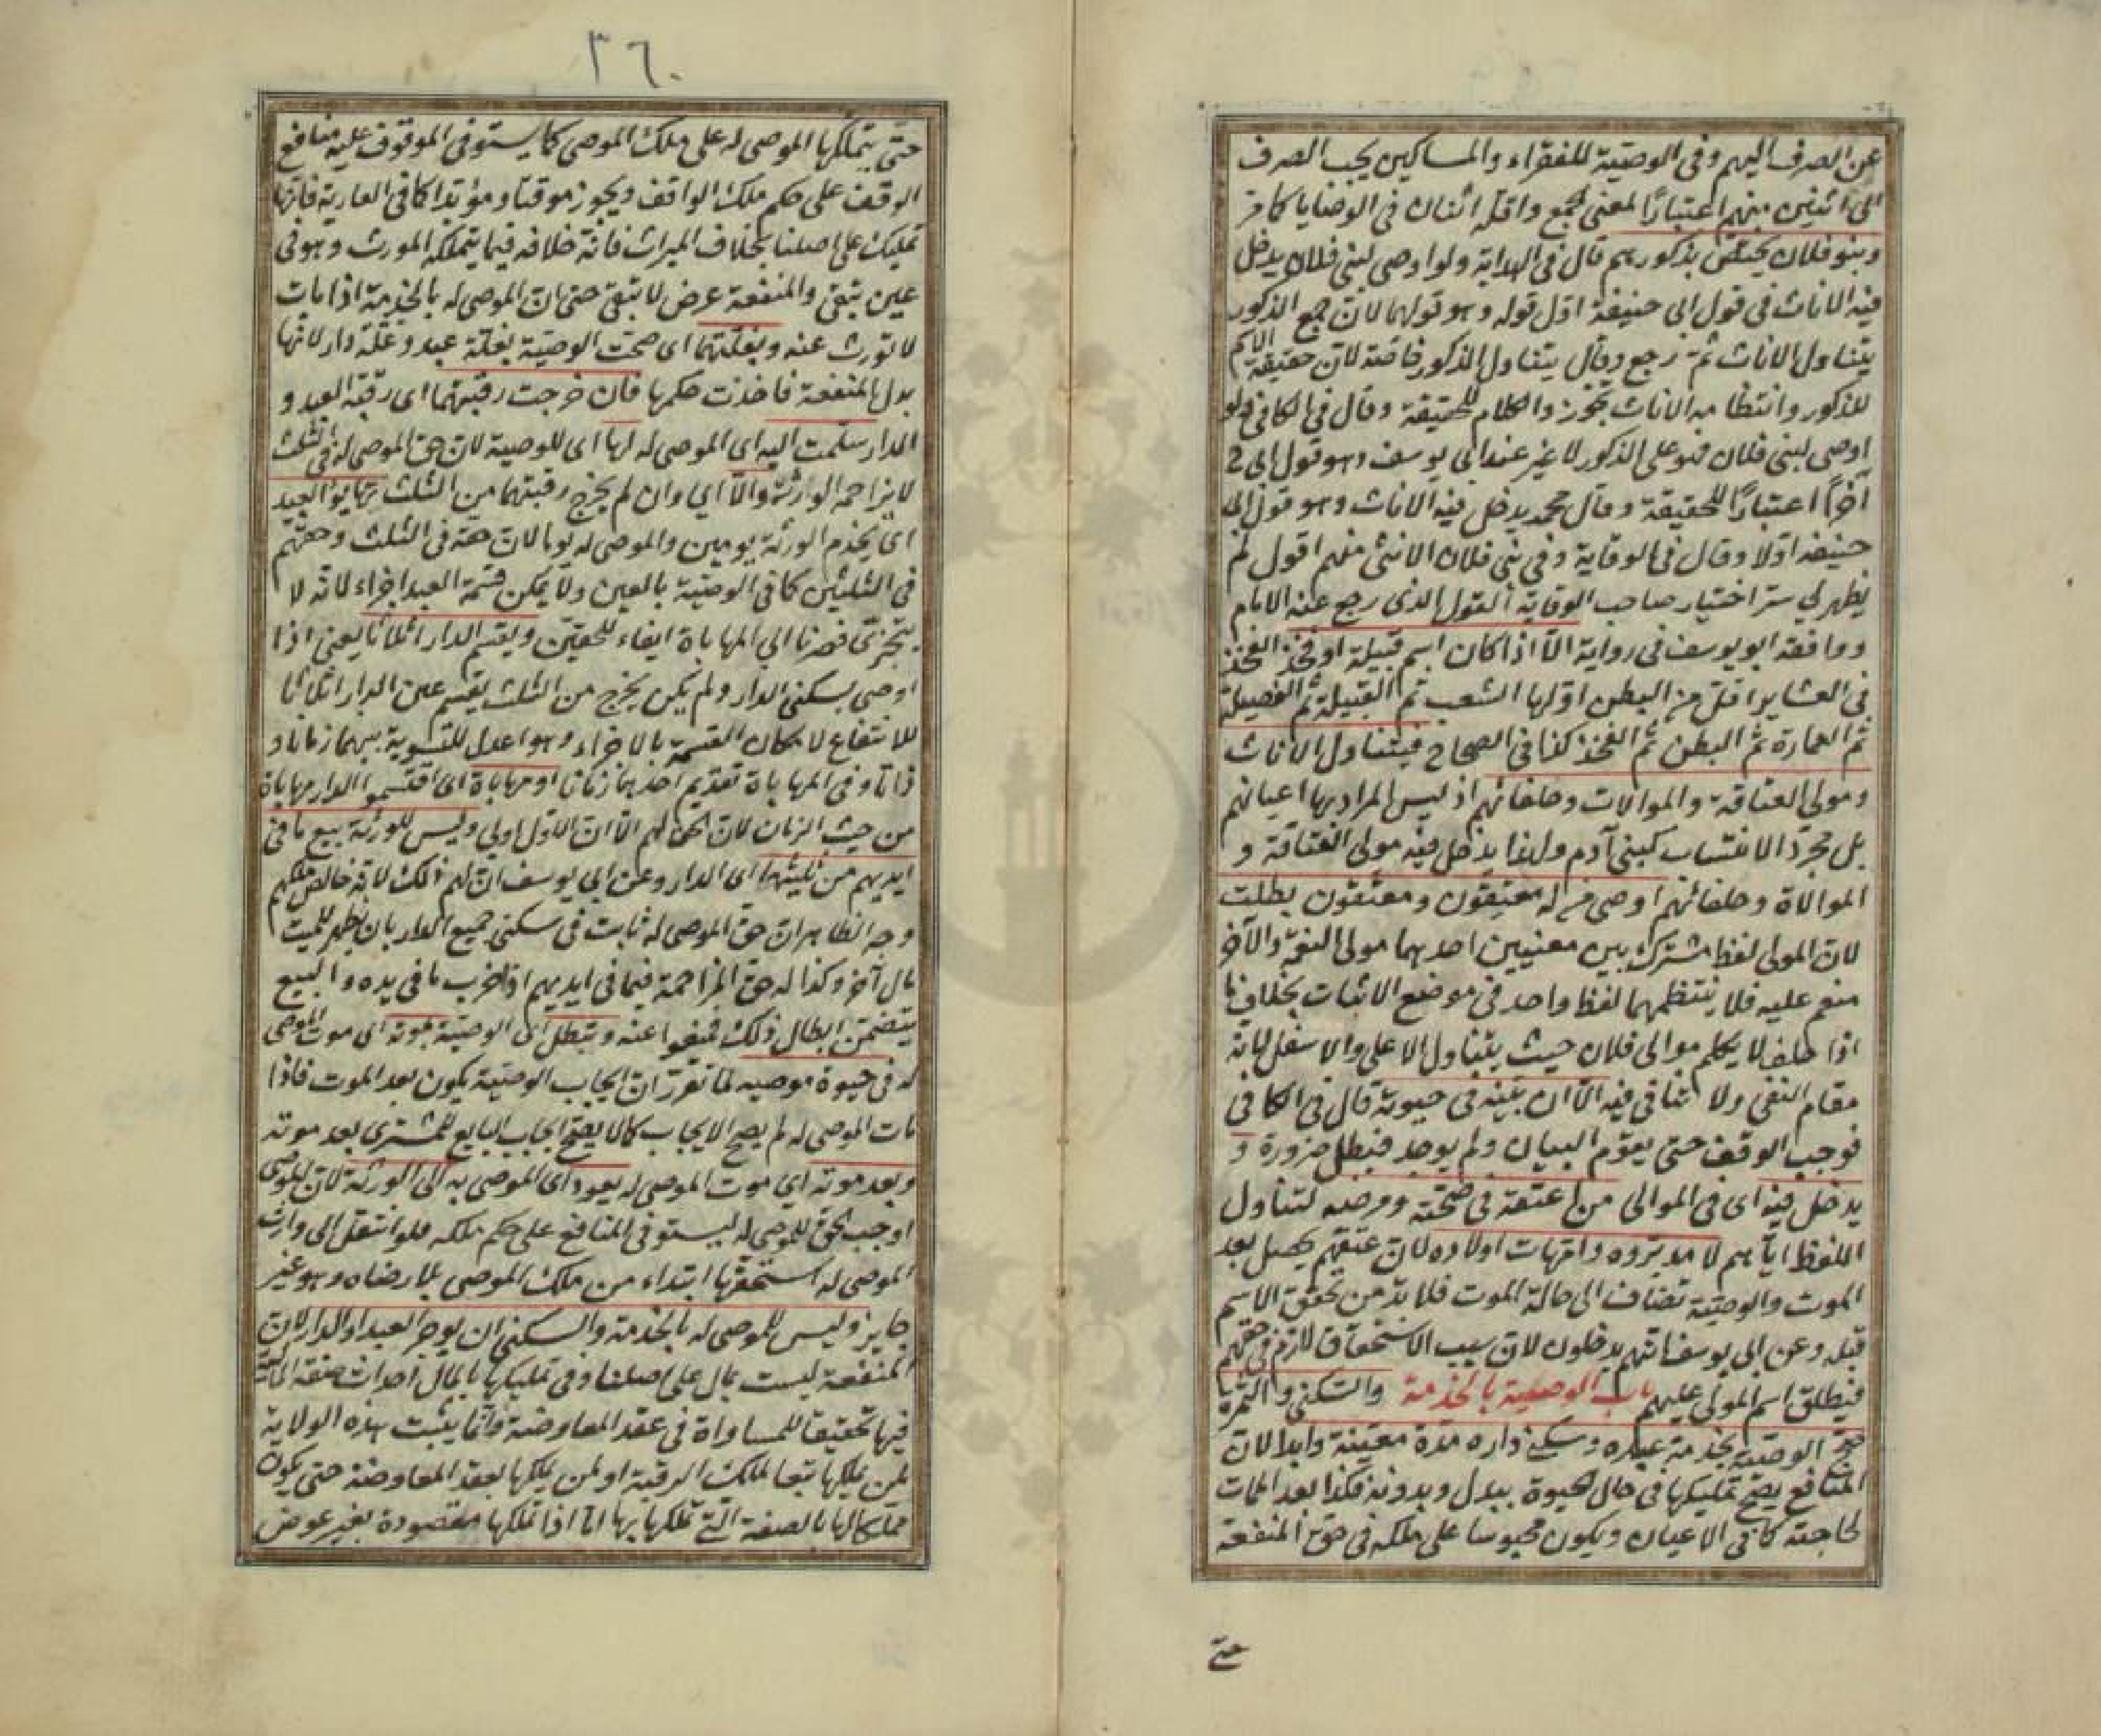 عن الصرف اليهم وفى الوصية للفقراء والمساكين يجب الصرف
الى اثنين منهم اعتبارًا لمعنى الجمع واقله اثنان فى الوصايا كما مر
وبنو فلان يختص بذكورهم قال فى الهداية ولو اوصى لبنى فلان يدخل
فيه الاناث فى قول ابى حنيفة اول قوله وهو قولهما لان جمع الذكور
يتناول الاناث ثم رجع وقال يتناول الذكور خاصة لان حقيقة الاسم
للذكور وانتظامه الاناث تجوز والكلام للحقيقة وقال فى الكافى ولو
اوصى لبنى فلان فهو على الذكور لا غير عند ابى يوسف وهو قول ابى ح
آخرًا اعتبارًا للحقيقة وقال محمد يدخل فيه الاناث وهو قول ابى
حنيفة اولا وقال فى الوقاية وفى بنى فلان الانثى منهم اقول لم
يظهر لي سر اختيار صاحب الوقاية القول الذى رجع عنه الامام
ووافقه ابو يوسف فى رواية الا اذا كان اسم قبيلة او فخذ الفخذ
فى العشاير اقل من البطن اولها الشعب ثم القبيلة ثم الفصيلة
ثم العمارة ثم البطن ثم الفخذ كذا فى الصحاح فيتناول الاناث
ومولى العتاقة والموالات وحلفائهم اذ ليس المراد بها اعيانهم
بل مجرد الانتساب كبنى آدم ولهذا يدخل فيه مولى العتاقة و
الموالاة وحلفائهم اوصى من له معتِقون ومعتَقون بطلت
لان المولى لفظ مشترك بين معنيين احدهما مولى النعمة والآخر
منعم عليه فلا ينتظمهما لفظ واحد فى موضع الاثبات بخلاف ما
اذا حلف لا يكلم موالى فلان حيث يتناول الاعلى والاسفل لانه
مقام النفى ولا تنافى فيه الا ان بيّنه فى حيوته قال فى الكافى
فوجب الوقف حتى يقوم البيان ولم يوجد فبطل ضرورة و
يدخل فيه اى فى الموالى من اعتقه فى صحّته ومرضه لتناول
اللفظ اياهم لا مدبّروه وامّهات اولاده لان عتقهم يحصل بعد
الموت والوصية تضاف الى حالة الموت فلا بدّ من تحقق الاسم
قبله وعن ابى يوسف انهم يدخلون لان سبب الاستحقاق لازم فى حقهم
فيطلق اسم المولى عليهم باب الوصية بالخدمة والسكنى والثمرة
صح الوصية بخدمة عبده وسكنى داره مدة معيّنة وابدا لان
المنافع يصح تمليكها فى حال الحيوة ببدل وبدونه فكذا بعد الممات
لحاجته كما فى الاعيان ويكون محبوسا على ملكه فى حق المنفعة
حتى
٣٦٠
حتى يتملكها الموصى له على ملك الموصى كما يستوفى الموقوف عليه منافع
الوقف على حكم ملك الواقف ويجوز موقتا ومؤبدا كما فى العارية فانها
تمليك على اصلنا بخلاف الميراث فانه خلافة فيما يتملكه المورث وهو فى
عين تبقى والمنفعة عرض لا تبقى حتى ان الموصى له بالخدمة اذا مات
لا تورث عنه وبغلتهما اى صحت الوصية بغلة عبد وغلة دار لانها
بدل المنفعة فاخذت حكمها فان خرجت رقبتهما اى رقبة العبد و
الدار سلّمت اليه اى الموصى له لها اى للوصية لان حق الموصى له فى الثلث
لا يزاحمه الورثة والّا اي وان لم يخرج رقبتهما من الثلث تهايؤا العبد
اى يخدم الورثة يومين والموصى له يوما لان حقه فى الثلث وحقهم
فى الثلثين كما فى الوصية بالعين ولا يمكن قسمة العبد اجزاء لانه لا
يتجزى فصرنا الي المهاياة ايفاء للحقين ويقسم الدار اثلاثا يعنى اذا
اوصى بسكنى الدار ولم يكن يخرج من الثلث يقسم عين الدار اثلاثا
للانتفاع لامكان القسمة بالاجزاء وهو اعدل للتسوية بينهما زمانا و
ذاتا وفى المهاياة تقديم احدهما زمانا او مهاياة اى اقتسموا الدار مهاياة
من حيث الزمان لان الحق لهم الا ان الاول اولى وليس للورثة بيع ما فى
ايديهم من ثلثيها اى الدار وعن ابي يوسف ان لهم ذلك لانه خالص ملكهم
وجه الظاهر ان حق الموصى له ثابت فى سكنى جميع الدار بان يظهر للميت
مال آخر وكذا له حق المزاحمة فيما فى ايديهم اذا خرب ما فى يده والبيع
يتضمن ابطال ذلك فمنعوا عنه وتبطل اى الوصية بموته اى موت الموصى
له فى حيوة موصيه لما تقرر ان ايجاب الوصية يكون بعد الموت فاذا
مات الموصى له لم يصح الايجاب كما لا يصح ايجاب البايع للمشترى بعد موته
وبعد موته اي موت الموصى له يعود اى الموصى به الى الورثة لان الموصى
اوجب الحق للموصى له ليستوفى المنافع على حكم ملكه فلو انتقل الى وارث
الموصى له استحقها ابتداء من ملك الموصى بلا رضاه وهو غير
جايز وليس للموصى له بالخدمة والسكنى ان يوجر العبد او الدار لان
المنفعة ليست بمال على اصلنا وفى تمليكها بالمال احداث صفة المالية
فيها تحقيقا للمساواة فى عقد المعاوضة وانما يثبت هذه الولاية
لمن يملكها تبعا لملك الرقبة او لمن يملكها بعقد المعاوضة حتى يكون
مملكا لها بالصفة التى تملكها بها اما اذا تملكها مقصودة بغير عوض